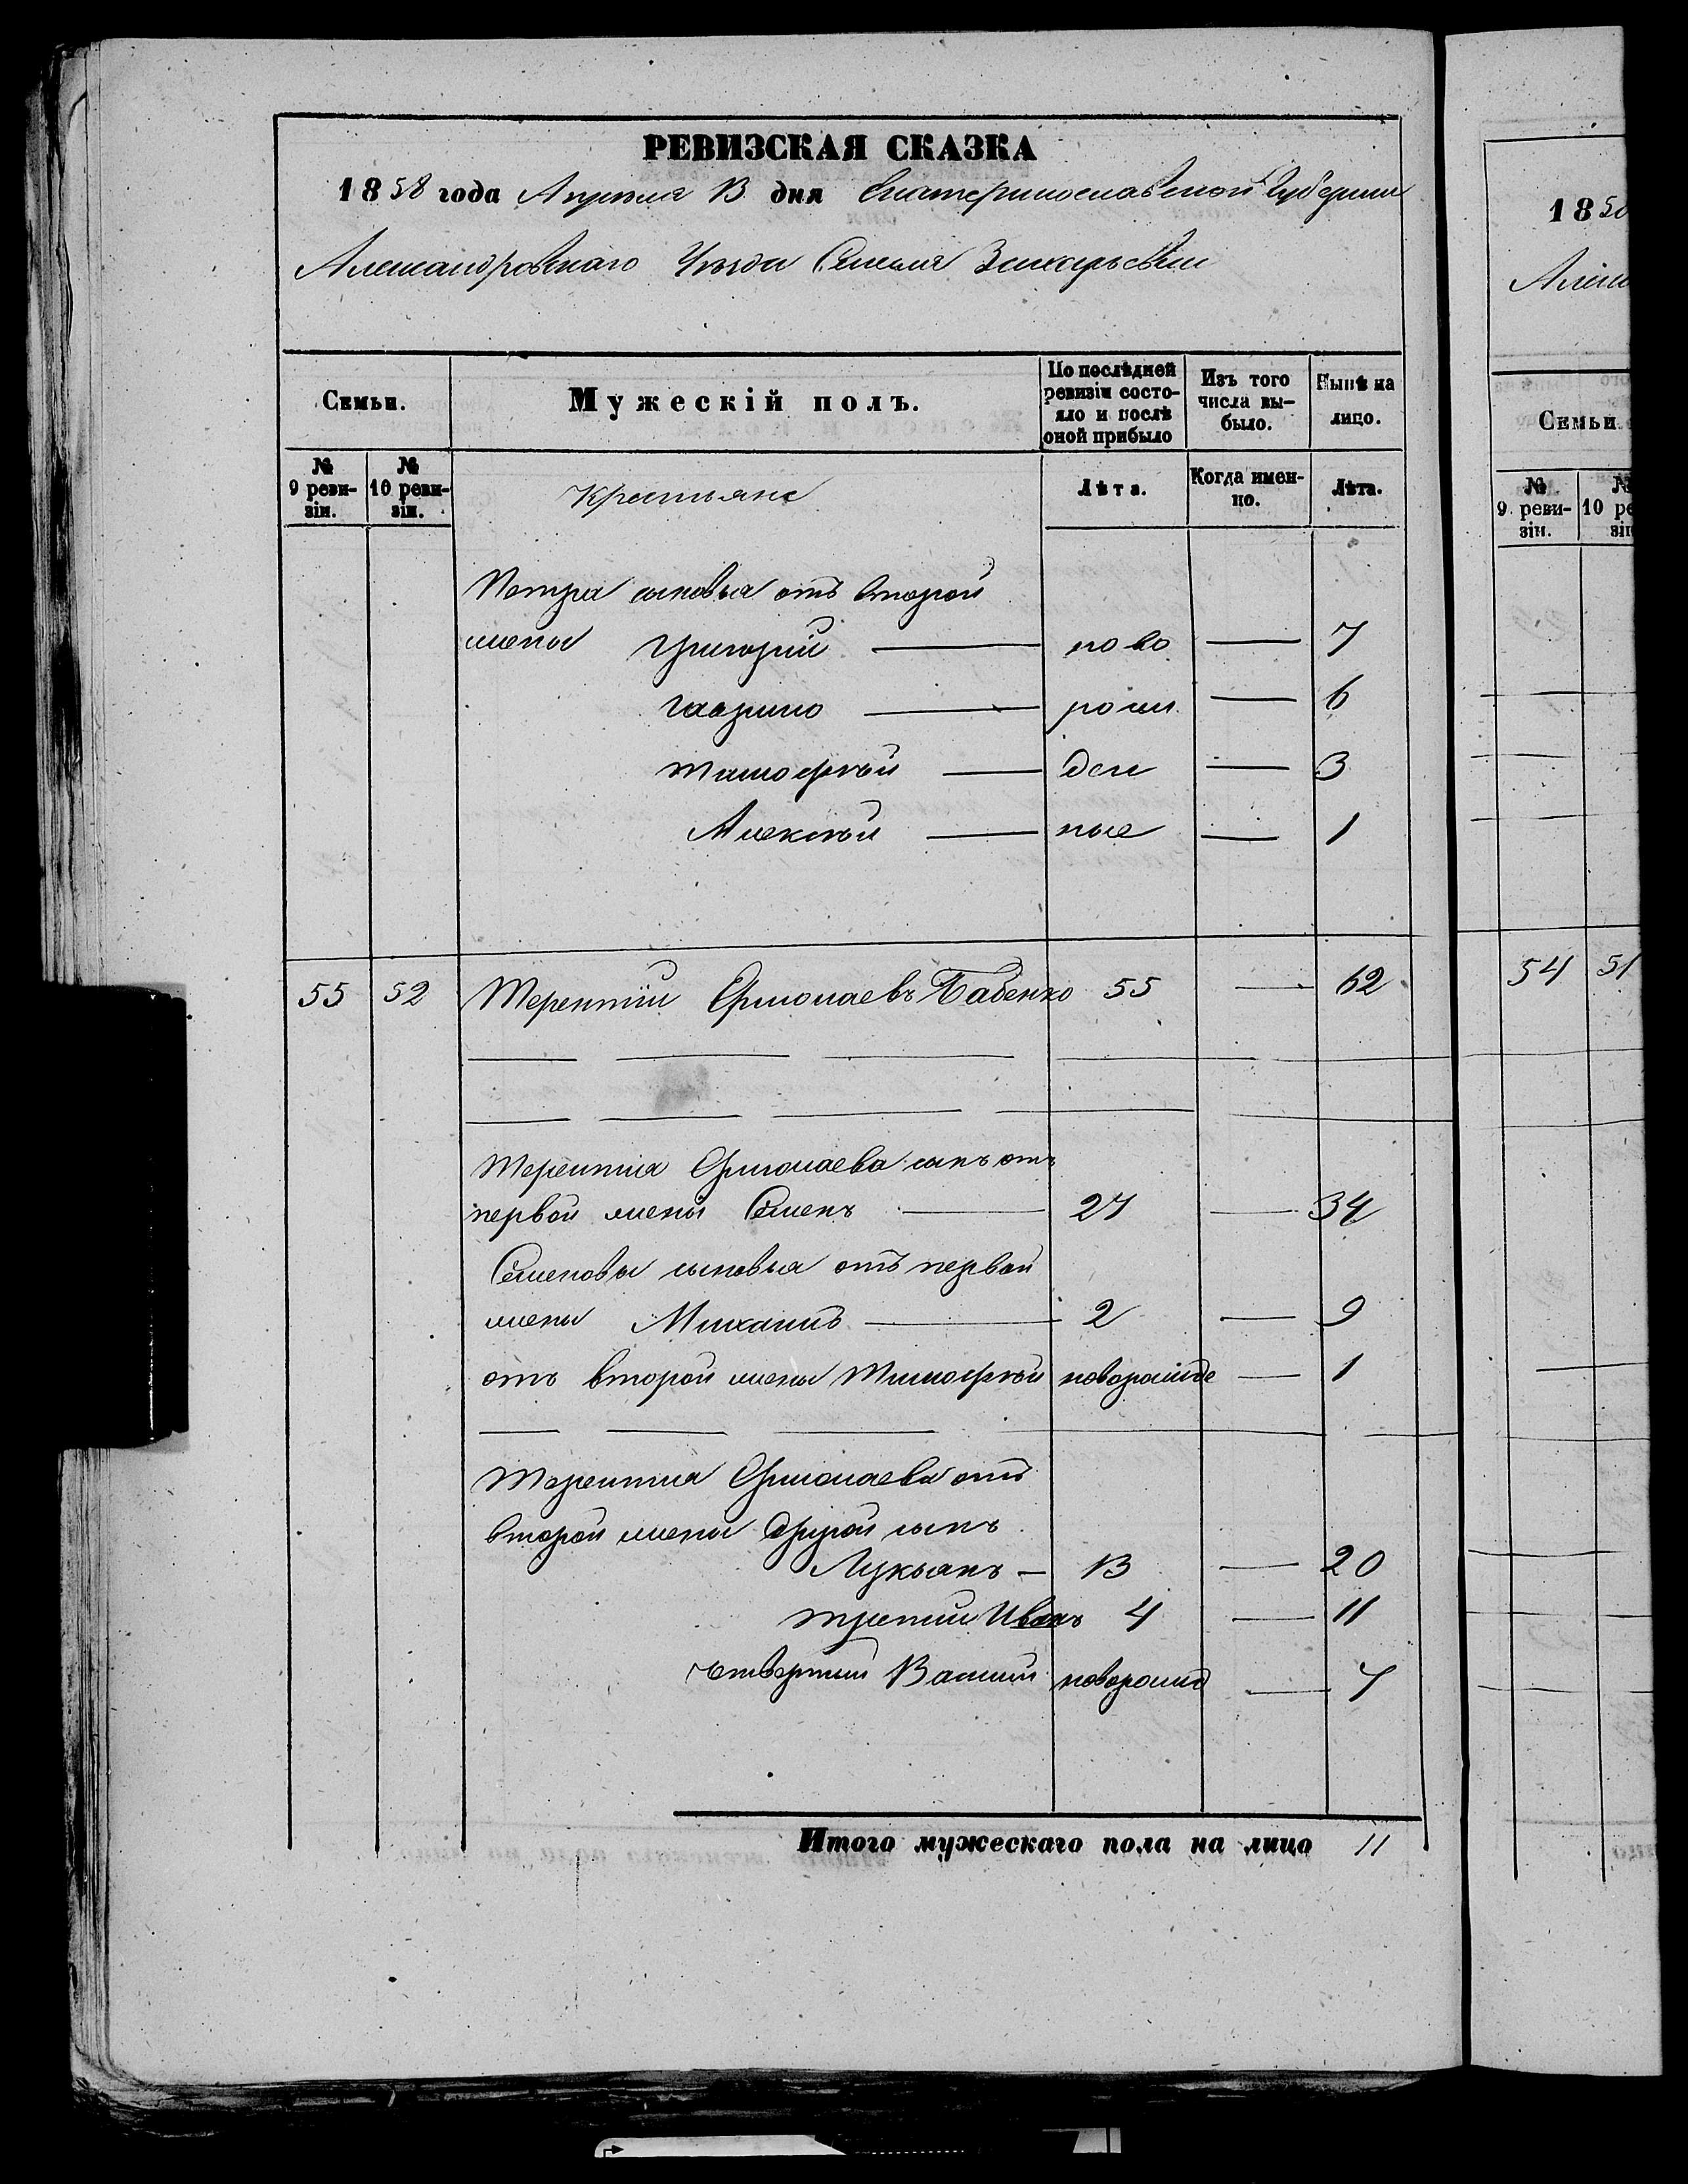 РЕВИЗСКАЯ СКАЗКА
1858 года Апреля 13 дня Екатеринославской Губернии
Александровскаго Уезда Селения Захарьевки
Семьи. Мужескій полъ. По послѣдней ревизіи состояло и послѣ оной прибыло Изъ того числа выбыло. Нынѣ на лицо.
№ 9 ревизіи. № 10 ревизіи. Крестьяне Лѣта. Когда именно. Лѣта.
Петра сыновья отъ второй
жены Григорій ново 7
Гаврило рож 6
Тимофѣй ден 3
Алексѣй ные 1
55 52 Терентій Ермолаевъ Бабенко 55 62
Терентія Ермолаева сынъ отъ
первой жены Семенъ 27 34
Семеновы сыновья отъ первой
жены Михаилъ 2 9
отъ второй жены Тимофѣй новорожде 1
Терентия Ермолаева отъ
второй жены другой сынъ
Лукьянъ 13 20
третий Иванъ 4 11
четвертый Василий новорожд 7
Итого мужескаго пола на лицо 11
1850
Алек
Семьи.
№ 9 ревизіи. № 10 ре
зіи
54 51